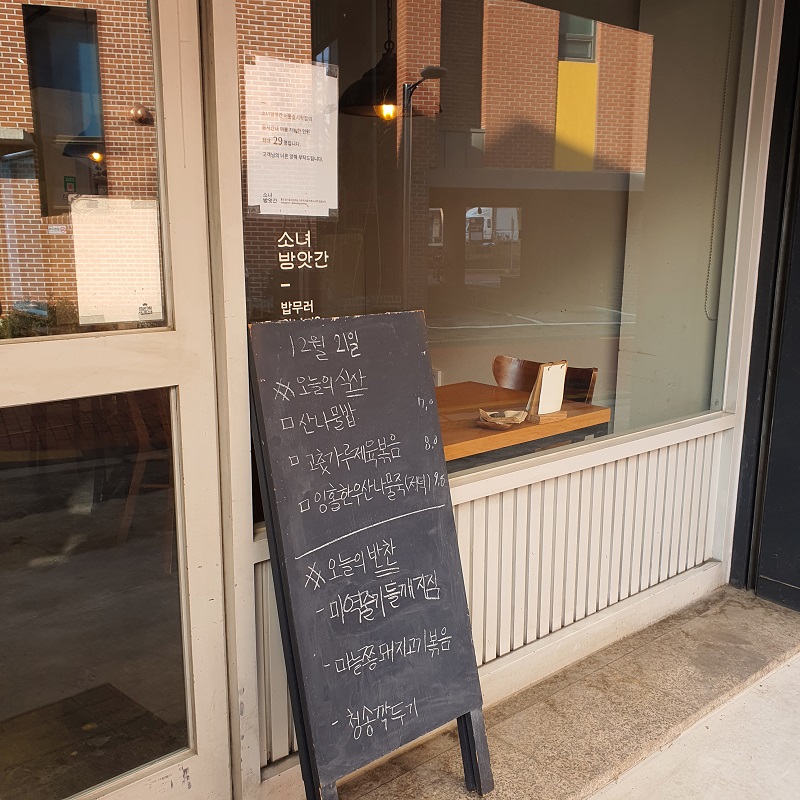 29
고객님의 너른 양해 부탁드립니다.
소녀
방앗간
소녀
방앗간
밥무러
12월 21일
※ 오늘의 식사
□ 산나물밥 7,0
□ 고춧가루제육볶음 8,0
□ 잉홍한우산나물죽(저녁) 9,5
※ 오늘의 반찬
- 미역줄기들깨지짐
- 마늘쫑돼지고기볶음
- 청송깍두기